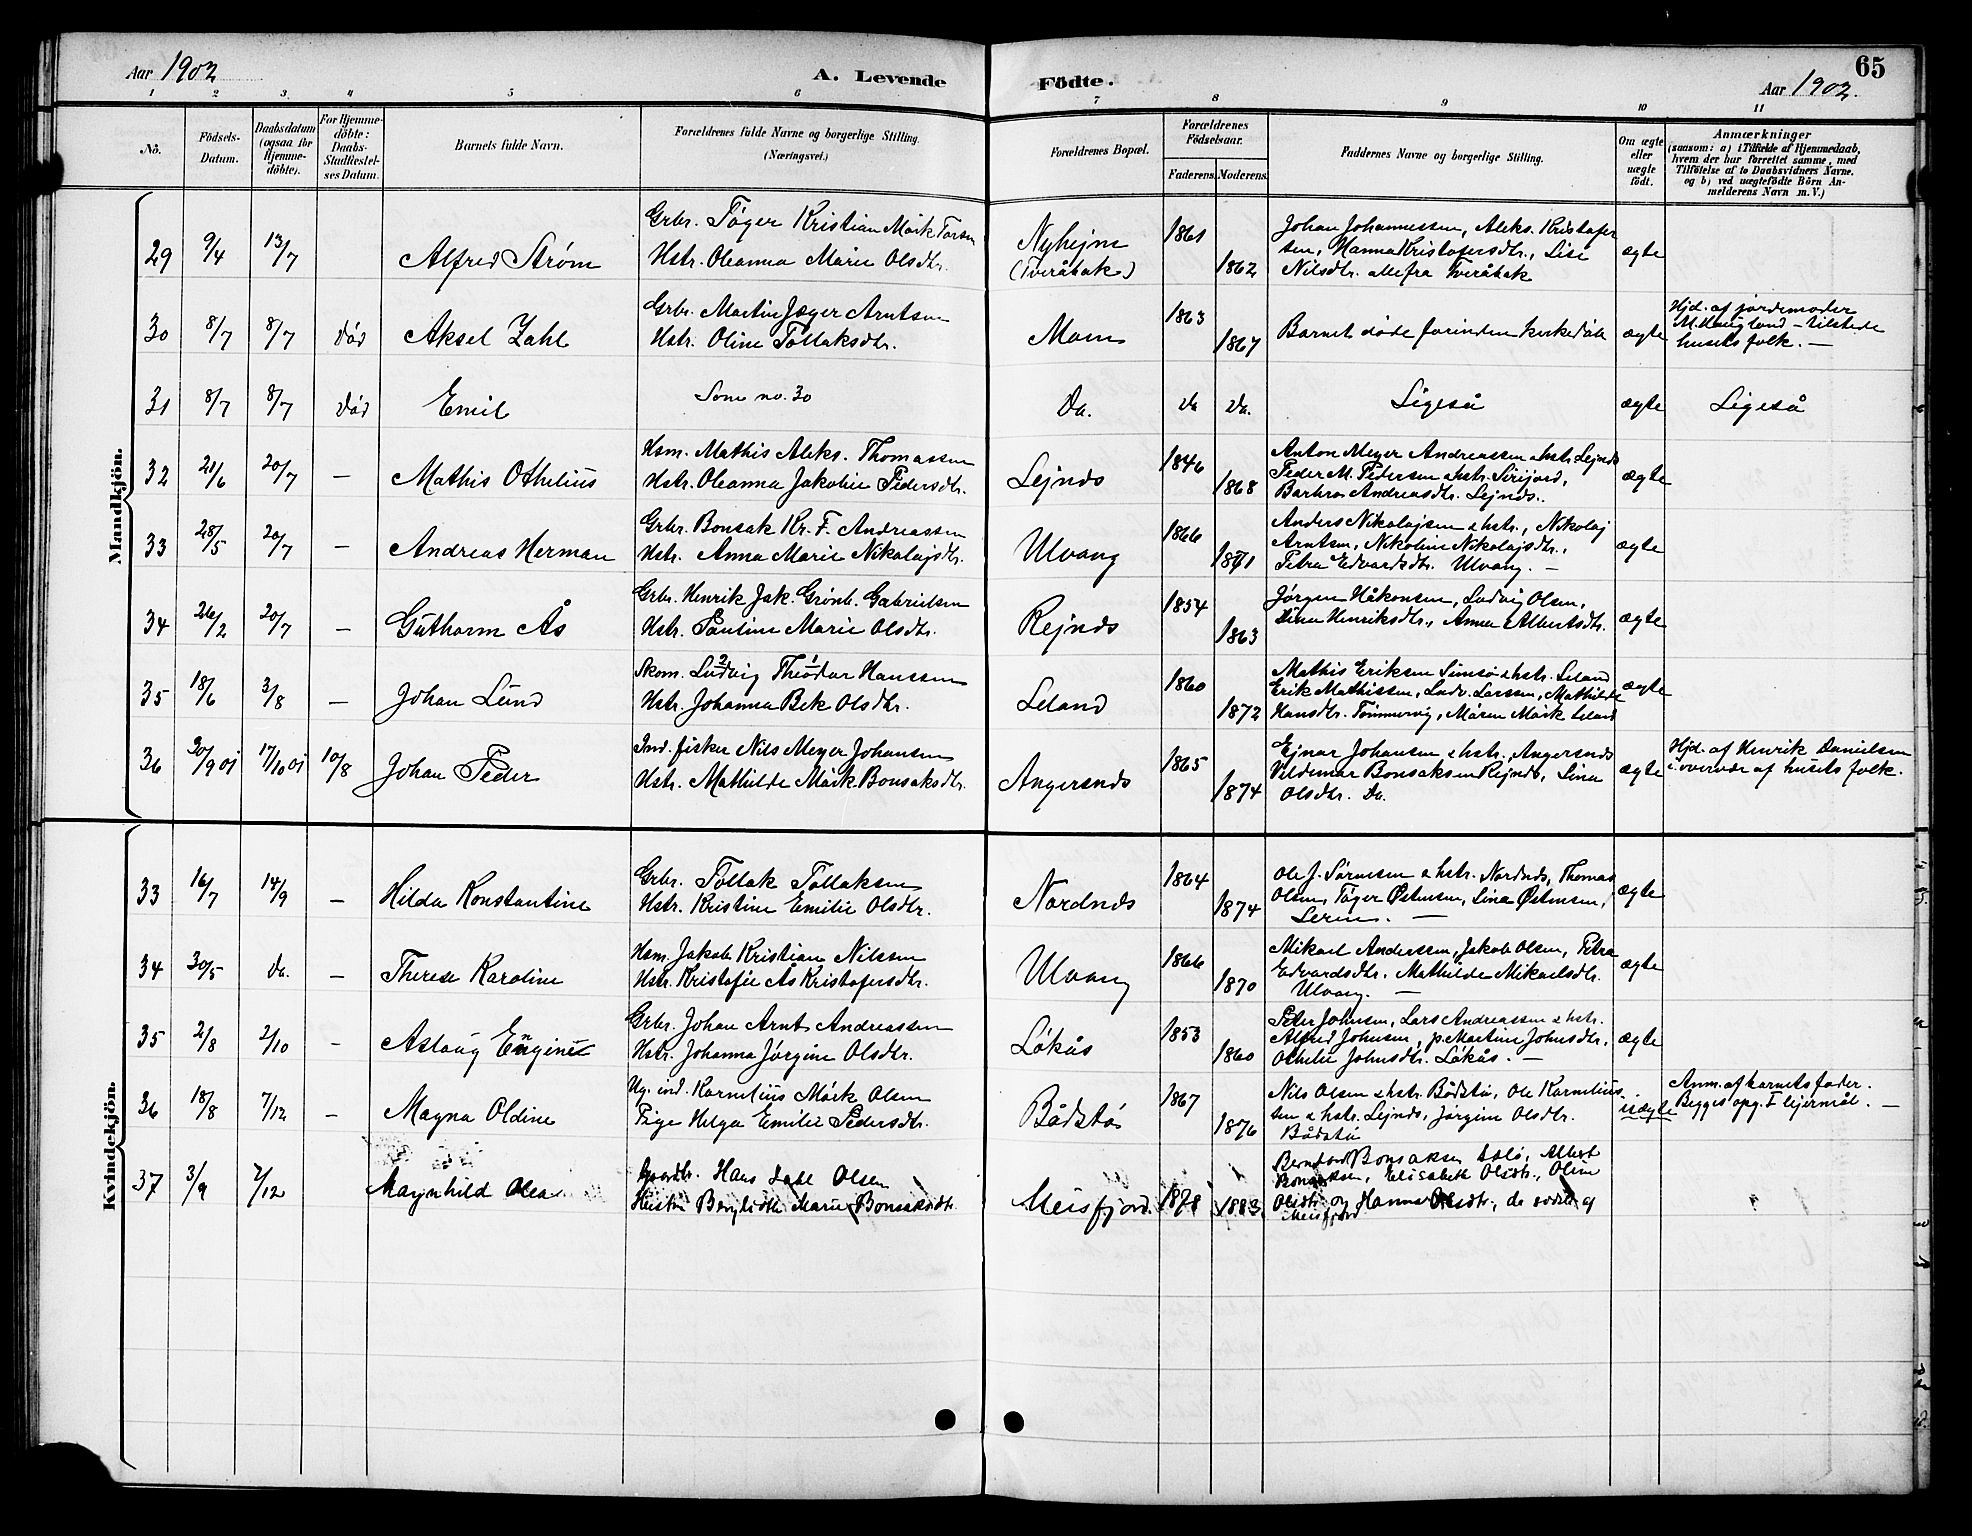 Aar 1902
A. Levende
Födte.
65
Aar 1902.
1 2 3. 4 5 6 7 8 9 10 11
No.
Födsels-Datum.
Daabsdatum (ogsaa for Hjemme-döbte).
For Hjemme-döbte: Daabs-Stadfæstel-ses Datum.
Barnets fulde Navn.
Forældrenes fulde Navne og borgerlige Stilling. (Næringsvei.)
Forældrenes Bopæl.
Forældrenes Födselsaar.
Faderens. Moderens.
Faddernes Navne og borgerlige Stilling.
Om ægte eller uægte født.
Anmærkninger
(saasom: a) i Tilfælde af Hjemmedaab,
hvem der har forrettet samme, med
Tilföielse af to Daabsvidners Navne.
og b) ved uægtefödte Börn An-
melderens Navn m. V.)
Mandkjön.
29 9/4 13/7 Alfred Strøm
Grbr. Tøger Kristian Mörk
Hstr. Oleanna Marie Olsdtr.
Nyhejm
(Tveråbak)
1861
1862
Johan Johannessen, Aleks. Kristofer
sen, Hanna Kristofersdtr., Lise
Nilsdtr. alle fra Tveråbak
ægte
30 8/7 8/7 død Aksel Zahl
Grbr. Martin Jæger Arntsen
Hstr. Oline Tollaksdtr.
Moen
1863
1867
Barnet døde forinden kirkedåb
ægte
Hjd. af jordemoder
M. Haugland - tilstede
husets folk. -
31 8/7 8/7 død Emil
Som no. 30
Do.
do do.
Ligeså
ægte
Ligeså
32 21/6 20/7 - Mathis Othelius
Hsm. Mathis Aleks. Thomassen
Hstr. Oleanna Jakobine Pedersdtr.
Lejnds
1846
1868
Anton Meyer Andreassen & hstr. Lejnds
Peder M. Pedersen & hstr. Sirijord,
Barbro Andreasdtr. Lejnds.
ægte
33 28/5 20/7 - Andreas Herman
Grbr. Bonsak Kr. F. Andreassen
Hstr. Anna Marie Nikolajsdtr.
Ulvang
1866
1871
Anders Nikolajsen & hstr., Nikolaj
Arntsen, Nikoline Nikolajsdtr.,
Petra Edvardsdtr. Ulvang. -
ægte
34 26/2 20/7 - Guthorm Ås
Grbr. Henrik Jak. Grönb. Gabrielsen
Hstr. Pauline Marie Olsdtr.
Rejnds
1854
1863
Jørgen Håkonsen, Ludvig Olsen,
Dina Henriksdtr., Anna Albertsdtr.
ægte
35 18/6 3/8 - Johan Lund
Skom. Ludvig Theodor Hanssen
Hstr. Johanna Bek Olsdtr.
Leland
1860
1872
Mathis Eriksen Simsø & hstr. Leland
Erik Mathissen, Ludv. Larssen, Mathilde
Hansdtr. Tømmervig, Mären Mörk Leland
ægte
36 30/9 01 17/10 01 10/8 Johan Peder
Ind. fisker Nils Meyer Johansen
Hstr. Mathilde Mörk Bonsaksdtr.
Angersnds
1865
1874
Ejnar Johansen & hstr. Angersnds
Valdemar Bonsaksen Rejnds, Lina
Olsdtr. Do.
ægte
Hjd. af Henrik Danielsen
i overvær af husets folk.
Kvindekjön.
33 16/7 14/9 - Hilda Konstantine
Grbr. Tollak Tollaksen
Hstr. Kristine Emilie Olsdtr.
Nordnds
1864
1874
Ole J. Sørensen & hstr. Nordnds, Thomas
Olsen, Tøger Østensen, Lina Østensen,
ægte
34 30/5 do. - Therese Karoline
Hsm. Jakob Kristian Nilssen
Hstr. Kristofie Ås Kristofersdtr.
Ulvang
1866
1870
Mikael Anderssen, Jakob Olsen, Petra
Edvardsdtr. Mathilde Mikaelsdtr.
Ulvang. -
ægte
35 2/8 2/10 - Aslaug Euginie
Grbr. Johan Arnt Andreassen
Hstr. Johanna Jørgine Olsdtr.
Løkås
1853
1860
Peter Johnsen, Lars Andreassen & hstr.
Alfred Johnsen, p. Martine Johnsdtr.
Othelie Johnsdtr. Løkås. -
ægte
36 18/8 7/12 - Magna Oldine
Ug. ind. Kornelius Mörk Olsen
Pige Helga Emilie Pedersdtr.
Bådstø
1867
1876
Nils Olsen & hstr. Bådstø, Ole Kornelius
sen & hstr. Lejnds, Jørgine Olsdtr.
Bådstø
uægte
Anm. af barnets fader.
Begges opg. I lejermål. -
37 3/9 7/12 Magnhild Olea
Gaardbr. Hans Dahl Olsen
Hustru Bergitthe Marie Bonsaksdtr.
Meisfjord.
1878
1883
Berntard Bonsaksen, Albert
Bonsaksen, Elisabeth Olsdtr, Oline
Olsdtr og Hanna Olsdtr,
Meisfjord